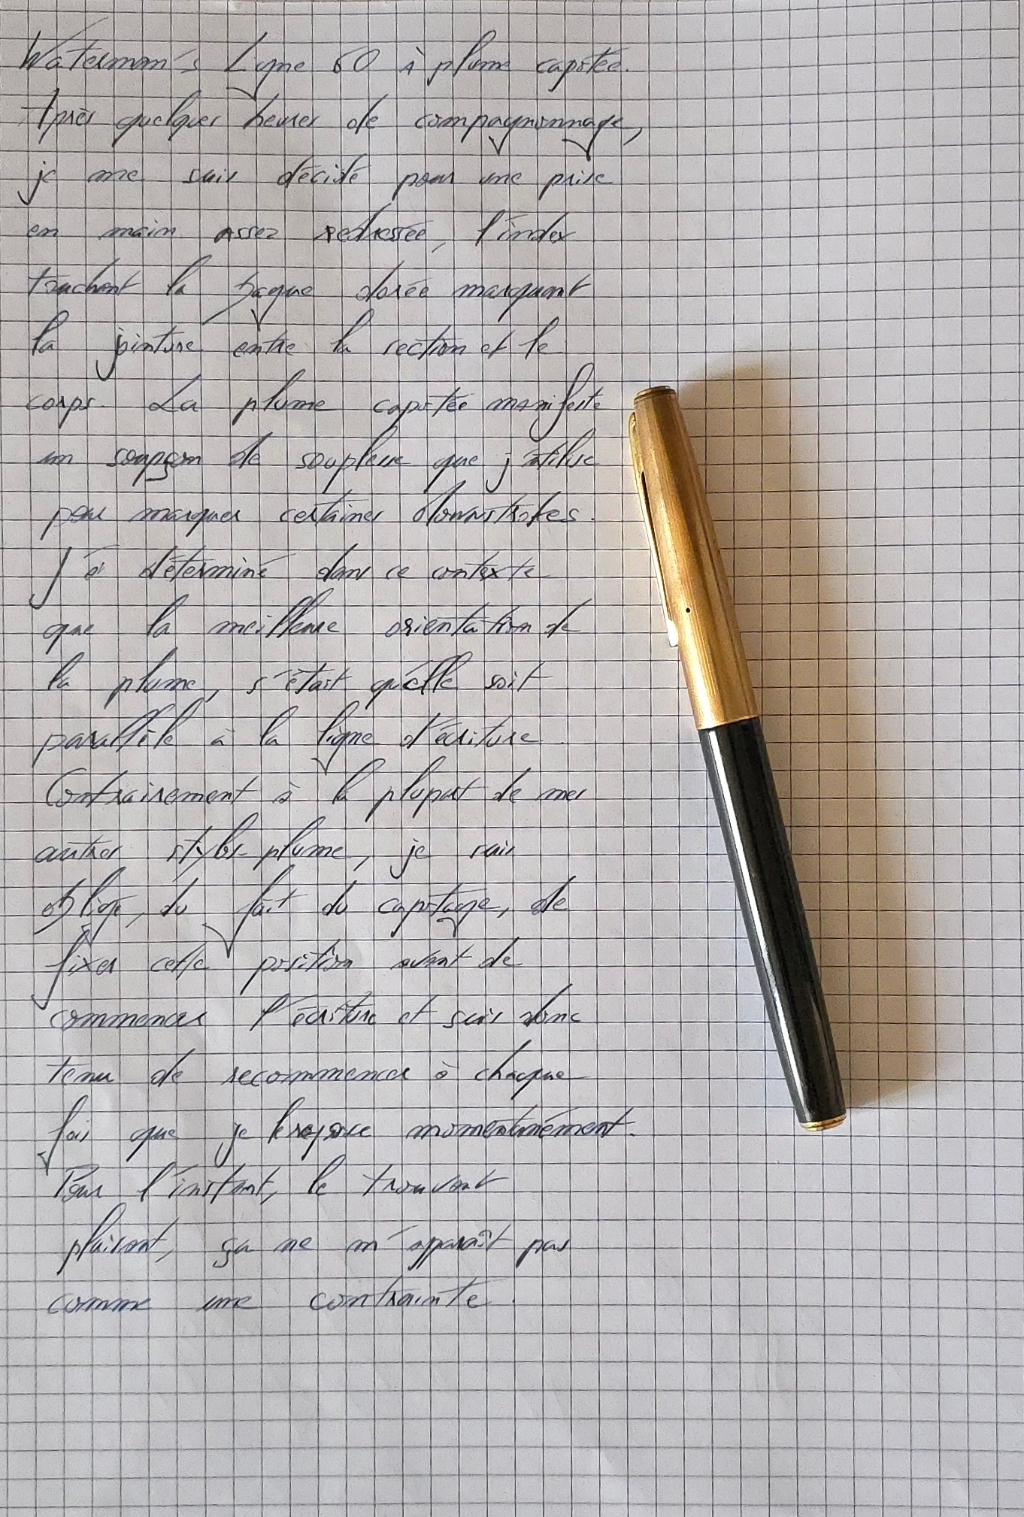 Waterman's Ligne 60 à plume capotée.
Après quelques heures de compagnonnage,
je me suis décidé pour une prise
en main assez redressée, l'index
touchant la bague dorée marquant
la jointure entre la section et le
corps. La plume capotée manifeste
un soupçon de souplesse que j'utilise
pour marquer certaines downstrokes.
J'ai déterminé dans ce contexte
que la meilleure orientation de
la plume, s'était qu'elle soit
parallèle à la ligne d'écriture.
Contrairement à la plupart de mes
autres stylos-plume, je suis
obligé, du fait du capotage, de
fixer cette position avant de
commencer l'écriture et suis donc
tenu de recommencer à chaque
fois que je le repose momentanément.
Pour l'instant, le trouvant
plaisant, ça ne m'apparaît pas
comme une contrainte